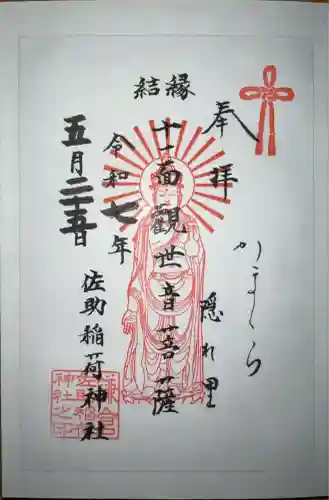 奉拝
かまくら
隠れ里
縁結
十一面観世音菩薩
令和七年
五月二十五日
佐助稲荷神社
鎌倉
佐助稲荷
神社之印